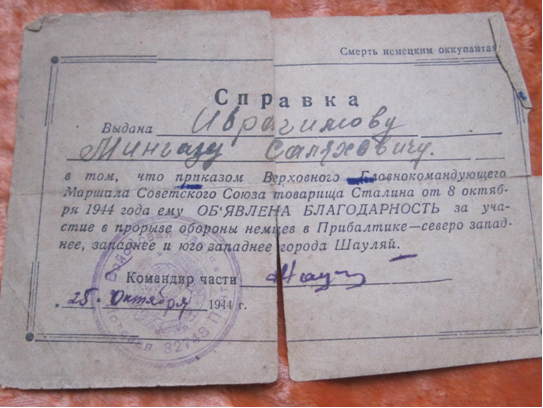 Смерть немецким оккупанта
Справка
Выдана Ибрагимову
Мингазу Саляховичу.
в том, что приказом Верховного Главнокомандующего
Маршала Советского Союза товарища Сталина от 8 октяб-
ря 1944 года ему ОБ'ЯВЛЕНА БЛАГОДАРНОСТЬ за уча-
стие в прорыве обороны немцев в Прибалтике—северо запад-
нее, западнее и юго западнее города Шауляй.
Командир части
25 октября 1944 г.
32748